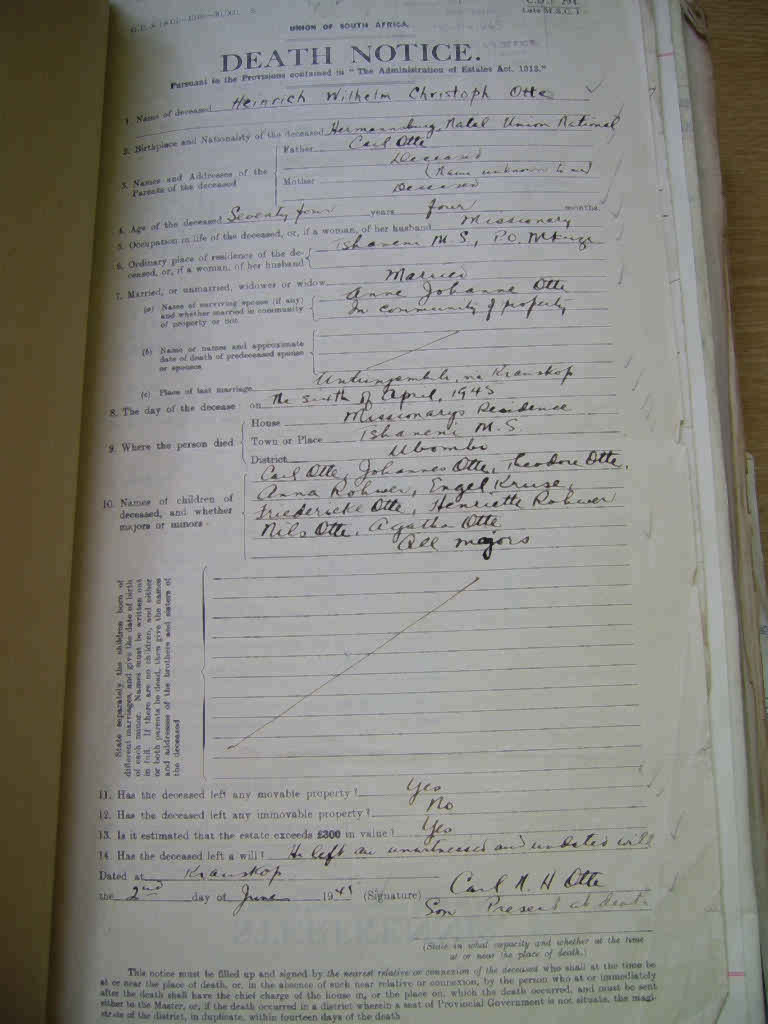 UNION OF SOUTH AFRICA.
DEATH NOTICE.
Pursuant to the Provisions contained in "The Administration of Estates Act, 1913."
1. Name of deceased Heinrich Wilhelm Christoph Otte
2. Birthplace and Nationality of the deceased Hermannsburg, Natal Union National
3. Names and Addresses of the Parents of the deceased
Father Carl Otte
Deceased
Mother (Name unknown to me)
Deceased
4. Age of the deceased Seventy four years four months.
5. Occupation in life of the deceased, or, if a woman, of her husband Missionary
6. Ordinary place of residence of the deceased, or, if a woman, of her husband Ishaneni M.S., P.O. Mkuze
7. Married, or unmarried, widower or widow Married
(a) Name of surviving spouse (if any) and whether married in community of property or not
Anne Johanne Otte
In community of property
(b) Name or names and approximate date of death of predeceased spouse or spouses
(c) Place of last marriage Kranskop
8. The day of the decease on The sixth of April, 1945
9. Where the person died
House Missionary's Residence
Town or Place Ishaneni M.S.
District Ubombo
10. Names of children of deceased, and whether majors or minors -
Carl Otte, Johannes Otte, Theodore Otte,
Anna Rohwer, Engel Kruse,
Friedericke Otte, Henriette Rohwer
Nils Otte, Agatha Otte
All majors
State separately the children born of
different marriages, and give the date of birth
of each minor. Names must be written out
in full. If there are no children, and either
or both parents be dead, then give the names
and addresses of the brothers and sisters of
the deceased
11. Has the deceased left any movable property? Yes
12. Has the deceased left any immovable property? No
13. Is it estimated that the estate exceeds £300 in value? Yes
14. Has the deceased left a will? He left an unwitnessed and undated will
Dated at Kranskop
the 2nd day of June 19 (Signature) Carl H Otte
Son Present at death
(State in what capacity and whether at the time
at or near the place of death.)
This notice must be filled up and signed by the nearest relative or connexion of the deceased who shall at the time be
at or near the place of death, or, in the absence of such near relative or connexion, by the person who at or immediately
after the death shall have the chief charge of the house in, or the place on, which the death occurred, and must be sent
either to the Master, or, if the death occurred in a district wherein a seat of Provincial Government is not situate, the magi-
strate of the district, in duplicate, within fourteen days of the death